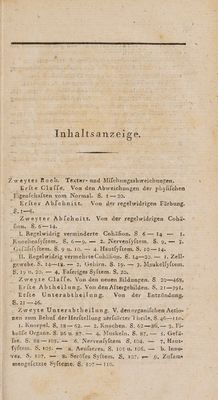 Inhaltsanzeige.
Zweytes Buch. Textur- und Mischungsabweichungen.
Erste Classe. Von den Abweichungen der physischen
Eigenschaften vom Normal. S. 1—20.
Erster Abschnitt. Von der regelwidrigen Färbung.
S. 1—6.
Zweyter Abschnitt. Von der regelwidrigen Cohä-
sion. S. 6—14.
I. Regelwidrig verminderte Cohäsion. S. 6—14 — 1.
Knochensystem. S. 6—9. — 2. Nervensystem. S. 9. —
Gefäfssystem. S. 9 u. 10. — Hautsystem. S.
II. Regelwidrig vermehrte Cohäsion. S. 14—20. — 1. Zell-
gewebe. S. 14—18. — 2. Gehirn. S. 19. — 3. Muskelsystem.
S. 19 u. 20. — 4. Fasriges System. S. 20.
Zweyte Classe. Von den neuen Bildungen. S. 20—468.
Erste Abtheilung. Von den Aftergebilden. S. 21—291.
Erste Unterabtheilung. Von der Entzündung.
S. 21—46.
Zweyte Unterabtheilung. V. den organischen Actio-
nen zum Behuf der Herstellung zerstörter Theile. S. 46—110.
1. Knorpel. S. — 62. — 2. Knochen. S. 62—86. — 3. Fi-
bröse Organe. S. 86 u. 87. — 4. Muskeln. S. 87. — 5. Gef-
äfse. S. 88— — 6. Nervensystem. S. 104. — 7. Haut-
system. S. — 8. Aeufseres. S. 105—106. — b. In-
neres. S. 107. — 8. Seröses System. S. 107. — 9. Zusam-
mengesetzte Systeme. S. 107—110.